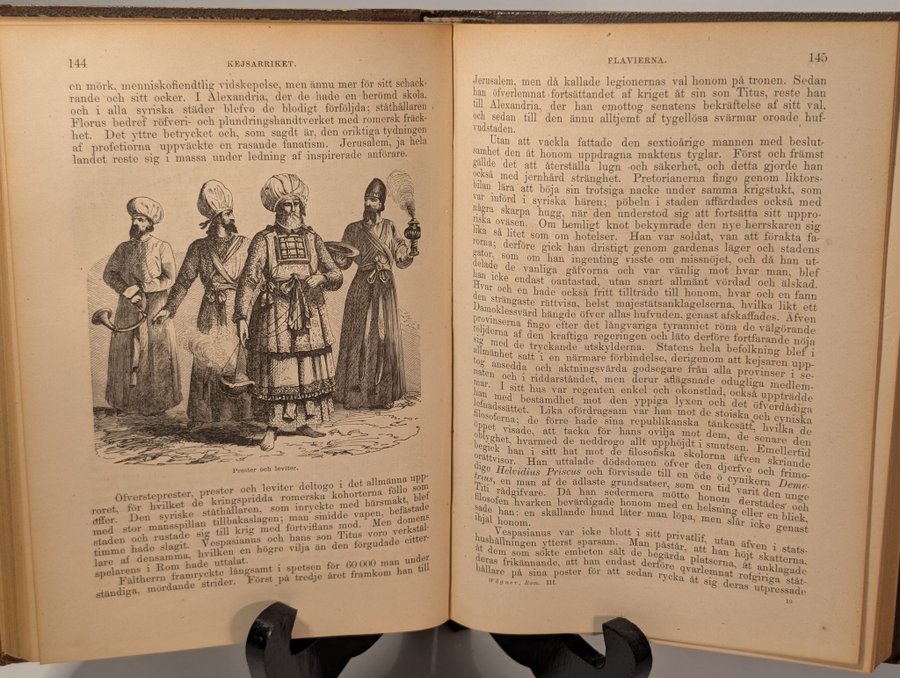 144
KEJSARRIKET.
en mörk, menniskofiendtlig vidskepelse, men ännu mer för sitt schack-
rande och sitt ocker. I Alexandria, der de hade en berömd skola,
och i alla syriska städer blefvo de blodigt förföljda; ståthållaren
Florus bedref röfveri- och plundringshandtverket med romersk fräck-
het. Det yttre betrycket och, som sagdt är, den oriktiga tydningen
af profetiorna uppväckte en rasande fanatism. Jerusalem, ja hela
landet reste sig i massa under ledning af inspirerade anförare.
Prester och leviter.
Öfversteprester, prester och leviter deltogo i det allmänna upp-
roret, för hvilket de kringspridda romerska kohorterna föllo som
offer. Den syriske ståthållaren, som inryckte med härsmakt, blef
med stor manspillan tillbakaslagen; man smidde vapen, befästade
staden och rustade sig till krig med förtviflans mod. Men domens
timme hade slagit. Vespasianus och hans son Titus voro verkstäl-
lare af densamma, hvilken en högre vilja än den förgudade citter-
spelarens i Rom hade uttalat.
Fältherrn framryckte långsamt i spetsen för 60 000 man under
ständiga, mordande strider. Först på tredje året framkom han till
FLAVIERNA.
145
Jerusalem, men då kallade legionernas val honom på tronen. Sedan
han öfverlemnat fortsättandet af kriget åt sin son Titus, reste han
till Alexandria, der han emottog senatens bekräftelse af sitt val,
och sedan till den ännu alltjemt af tygellösa svärmar oroade huf-
vudstaden.
Utan att vackla fattade den sextioårige mannen med beslut-
samhet den åt honom uppdragna maktens tyglar. Först och främst
gällde det att återställa lugn och säkerhet, och detta gjorde han
också med jernhård stränghet. Pretorianerna fingo genom liktors-
bilan lära att böja sin trotsiga nacke under samma krigstukt, som
var införd i syriska hären; pöbeln i staden affärdades också med
några skarpa hugg, när den understod sig att fortsätta sitt uppro-
riska oväsen. Om hemligt knot bekymrade den nye herrskaren sig
lika så litet som om hotelser. Han var soldat, van att förakta fa-
rorna; derföre gick han dristigt genom gardenas läger och stadens
gator, som om han ingenting visste om missnöjet, och då han ut-
delade de vanliga gåfvorna och var vänlig mot hvar man, blef
han icke endast oantastad, utan snart allmänt vördad och älskad.
Hvar och en hade också fritt tillträde till honom, hvar och en fann
den strängaste rättvisa, helst majestätsanklagelserna, hvilka likt ett
Damoklessvärd hängde öfver allas hufvuden, genast afskaffades. Äfven
provinserna fingo efter det långvariga tyranniet röna de välgörande
följderna af den kraftiga regeringen och läto derföre fortfarande nöja
sig med de tryckande utskylderna. Statens hela befolkning blef i
allmänhet satt i en närmare förbindelse, derigenom att kejsaren upp-
tog ansedda och aktningsvärda godsegare från alla provinser i se-
naten och i riddarståndet, men derur aflägsnade odugliga medlem-
mar. I sitt hus var regenten enkel och okonstlad, också uppträdde
han med bestämdhet mot den yppiga lyxen och det öfverdådiga
lefnadssättet. Lika ofördragsam var han mot de stoiska och cyniska
filosoferna; de förre hade sina republikanska tänkesätt, hvilka de
öppet visade, att tacka för hans ovilja mot dem, de senare den
oblyghet, hvarmed de neddrogo allt upphöjdt i smutsen. Emellertid
begick han i sitt hat mot de filosofiska skolorna äfven skriande
orättvisor. Han uttalade dödsdomen öfver den djerfve och frimo-
dige Helvidius Priscus och förvisade till en öde ö cynikern Deme-
trius, en man af de ädlaste grundsatser, som en tid varit den unge
Titi rådgifvare. Då han sedermera mötte honom derstädes och
filosofen hvarken bevärdigade honom med en helsning eller en blick,
sade han: en skällande hund låter man löpa, men slår icke genast
ihjäl honom.
Vespasianus var icke blott i sitt privatlif, utan äfven i stats-
hushållningen ytterst sparsam. Man påstår, att han höjt skatterna,
åt dem som sökte embeten sålt de begärda platserna, åt anklagade
deras frikännande, att han endast derföre qvarlemnat rofgiriga ståt-
hållare på sina poster för att sedan rycka åt sig deras utpressade
Wägner, Rom. III.
10